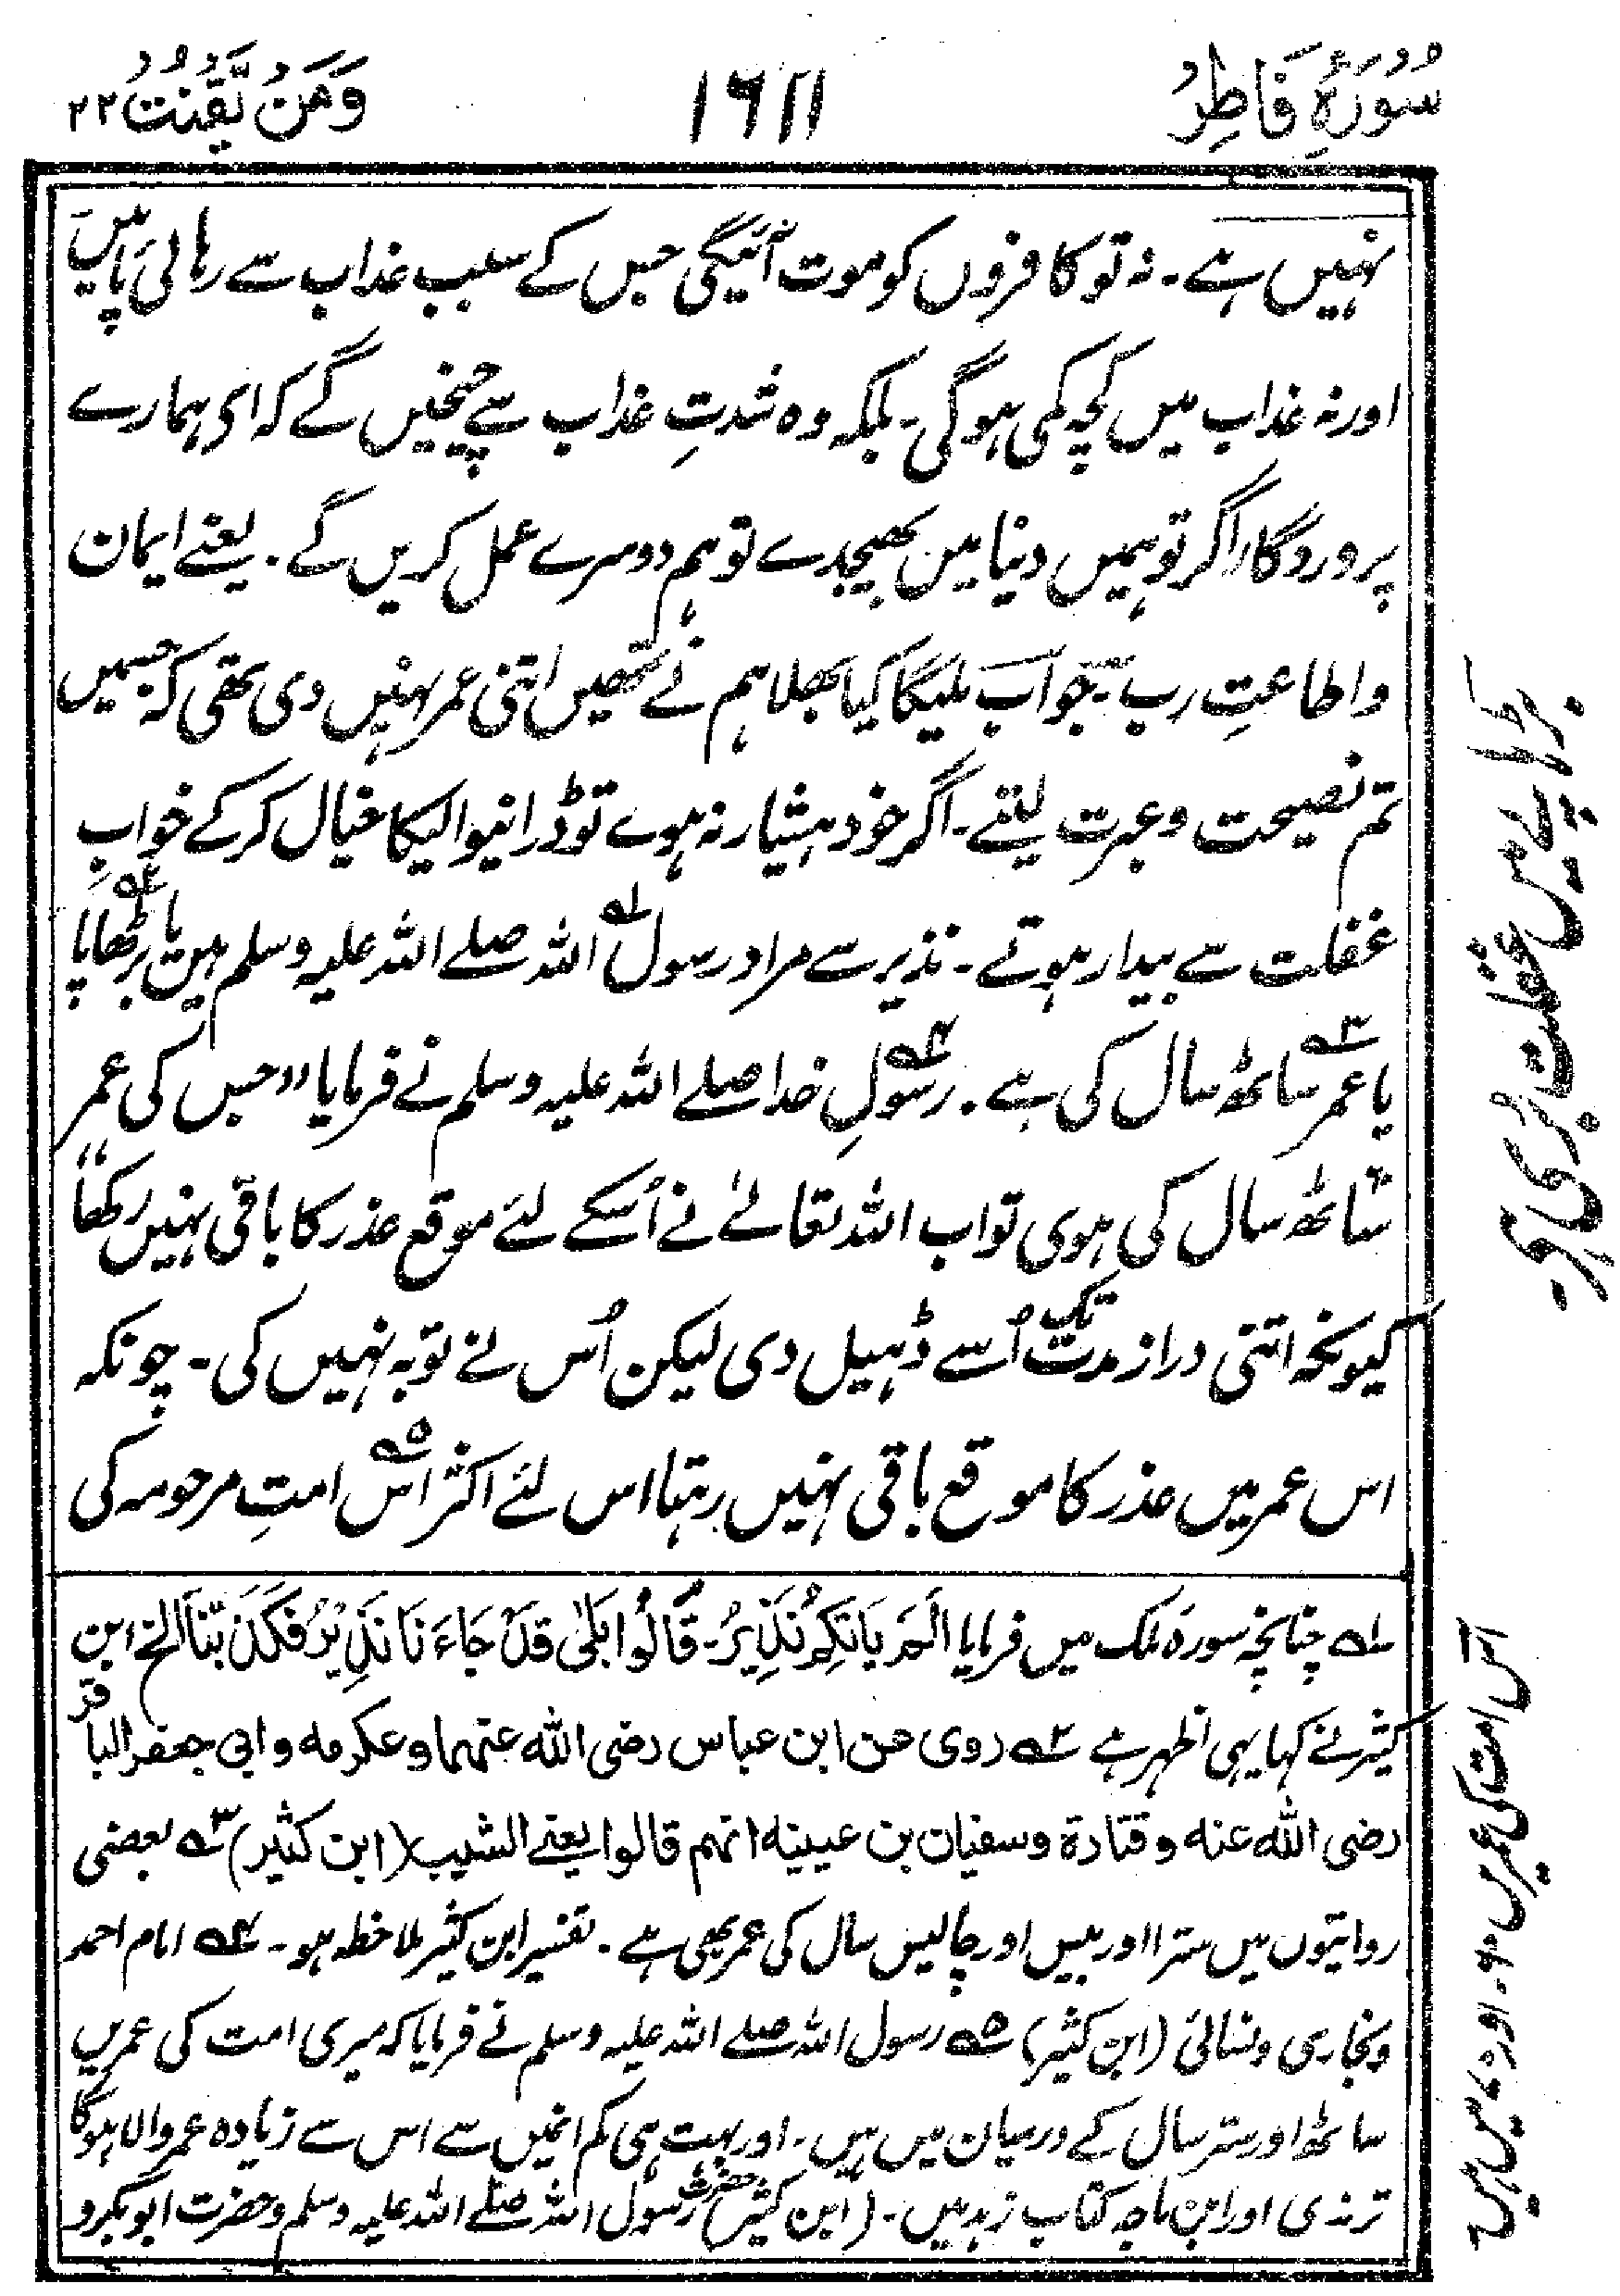 سُوْرَۂِ فَاطِرُ
۱۶۱۱
وَمَنْ یَّقْنُتْ ۲۲
نہیں ہے۔ نہ تو کافروں کو موت آئیگی جس کے سبب عذاب سے رہائی پائیں
اور نہ عذاب میں کچھ کمی ہوگی۔ بلکہ وہ شدتِ عذاب سے چیخیں گے کہ ای ہمارے
پروردگار اگر تو ہمیں دنیا میں بھیجدے تو ہم دوسرے عمل کریں گے۔ یعنے ایمان
و اطاعتِ رب۔ جواب ملیگا کیا بھلا ہم نے تمھیں اتنی عمر نہیں دی تھی کہ جسمیں
تم نصیحت و عبرت لیتے۔ اگر خود ہشیار نہ ہوے تو ڈرانیوالیکا خیال کرکے خوابِ
غفلت سے بیدار ہوتے۔ نذیر سے مراد رسول ۱ اللہ صلے اللہ علیہ وسلم ہیں یا بڑھاپا ۲
یا عمر ۳ ساٹھ سال کی ہے۔ رسولِ ۴ خدا صلے اللہ علیہ وسلم نے فرمایا "جس کی عمر
ساٹھ سال کی ہوی تو اب اللہ تعالےٰ نے اُسکے لئے موقع عذر کا باقی نہیں رکھا"
کیونکہ اتنی دراز مدت تک اُسے ڈھیل دی لیکن اُس نے توبہ نہیں کی۔ چونکہ
اس عمر میں عذر کا موقع باقی نہیں رہتا اس لئے اکثر اس ۵ امتِ مرحومہ کی
۱ چنانچہ سورۂ ملک میں فرمایا اَلَمْ یَاْتِکُمْ نَذِیْرٌ۔ قَالُوْا بَلٰی قَدْ جَاءَ نَا نَذِیْرٌ فَکَذَّبْنَا الخ ابن
کثیر نے کہا یہی اظہر ہے ۲ روی عن ابن عباس رضی اللہ عنہما و عکرمہ و ابی جعفر الباقر
رضی اللہ عنہ و قتادۃ و سفیان بن عیینہ انہم قالوا یعنے الشیب (ابن کثیر) ۳ بعضی
روایتوں میں سترا اور بیس اور چالیس سال کی عمر بھی ہے۔ تفسیر ابن کثیر ملاحظہ ہو۔ ۴ امام احمد
و بخاری و نسائی (ابن کثیر) ۵ رسول اللہ صلے اللہ علیہ وسلم نے فرمایا کہ میری امت کی عمریں
ساٹھ اور ستر سال کے درمیان میں ہیں۔ اور بہت ہی کم انمیں سے اس سے زیادہ عمر والا ہوگا
ترمذی اور ابن ماجہ کتاب زہد میں۔ (ابن کثیر) حضرت رسول اللہ صلے اللہ علیہ وسلم و حضرت ابوبکر و
بڑھاپے میں غفلت بُری ہی۔
اس امت کی عمریں ۶۰۔ اور ۷۰ میں ہیں